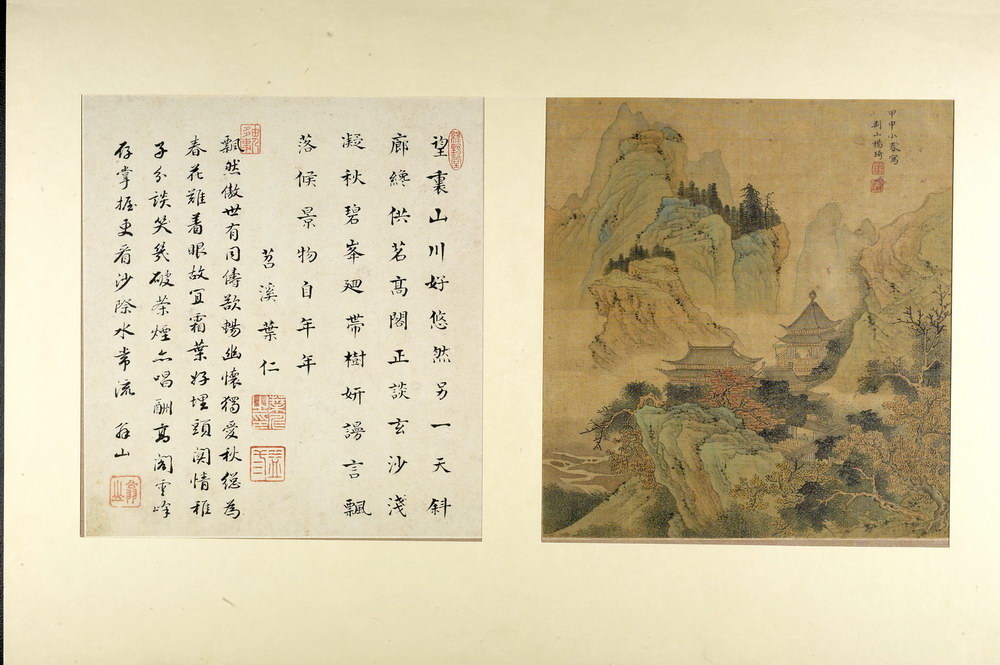 甲申小春寫
荊山楊琦
望裏山川好悠然另一天斜
廊纔供茗高閣正談玄沙淺
凝秋碧峯廻帶樹妍謾言飄
落候景物自年年
苕溪葉仁
飄然傲世有同儔欲暢幽懷獨愛秋總為
春花難着眼故宜霜葉好埋頭関情種
子分談笑幾破茶煙上唱酬高閣雲峰
存掌握更看沙際水常流 翁山